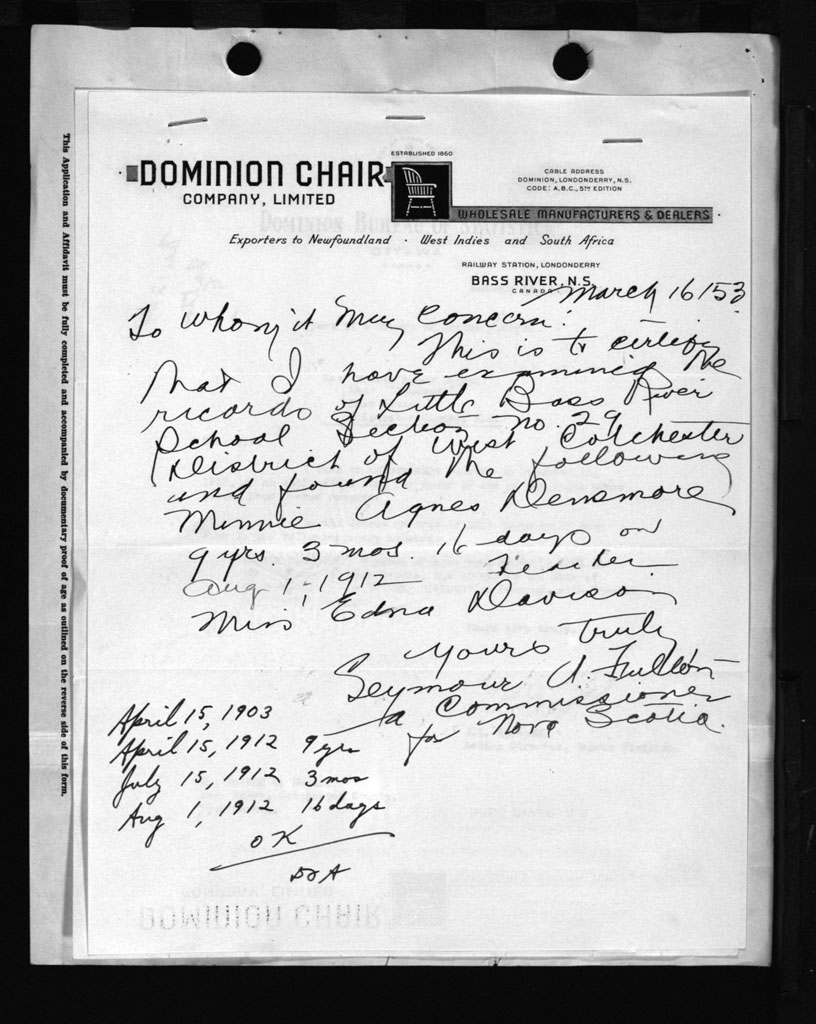 This Application and Affidavit must be fully completed and accompanied by documentary proof of age as outlined on the reverse side of this form.
ESTABLISHED 1860
DOMINION CHAIR
COMPANY, LIMITED
CABLE ADDRESS
DOMINION, LONDONDERRY, N.S.
CODE: A.B.C., 5TH EDITION
WHOLESALE MANUFACTURERS & DEALERS
DOMINION BUREAU OF STATISTICS
OTTAWA
Exporters to Newfoundland · West Indies and South Africa
RAILWAY STATION, LONDONDERRY
BASS RIVER, N.S.
CANADA
March 16/53
To Whom it May Concern:
This is to certify
that I have examined the
records of Little Bass River
School Section no. 29
District of West Colchester
and found the following
Minnie Agnes Densmore
9 yrs. 3 mos. 16 days on
Aug 1, 1912 Teacher
Miss Edna Davison
Yours truly
Seymour A. Fulton
a Commissioner
for Nova Scotia.
April 15, 1903
April 15, 1912 9 yrs
July 15, 1912 3 mos
Aug 1, 1912 16 days
OK
COMPANY, LIMITED
DOMINION CHAIR